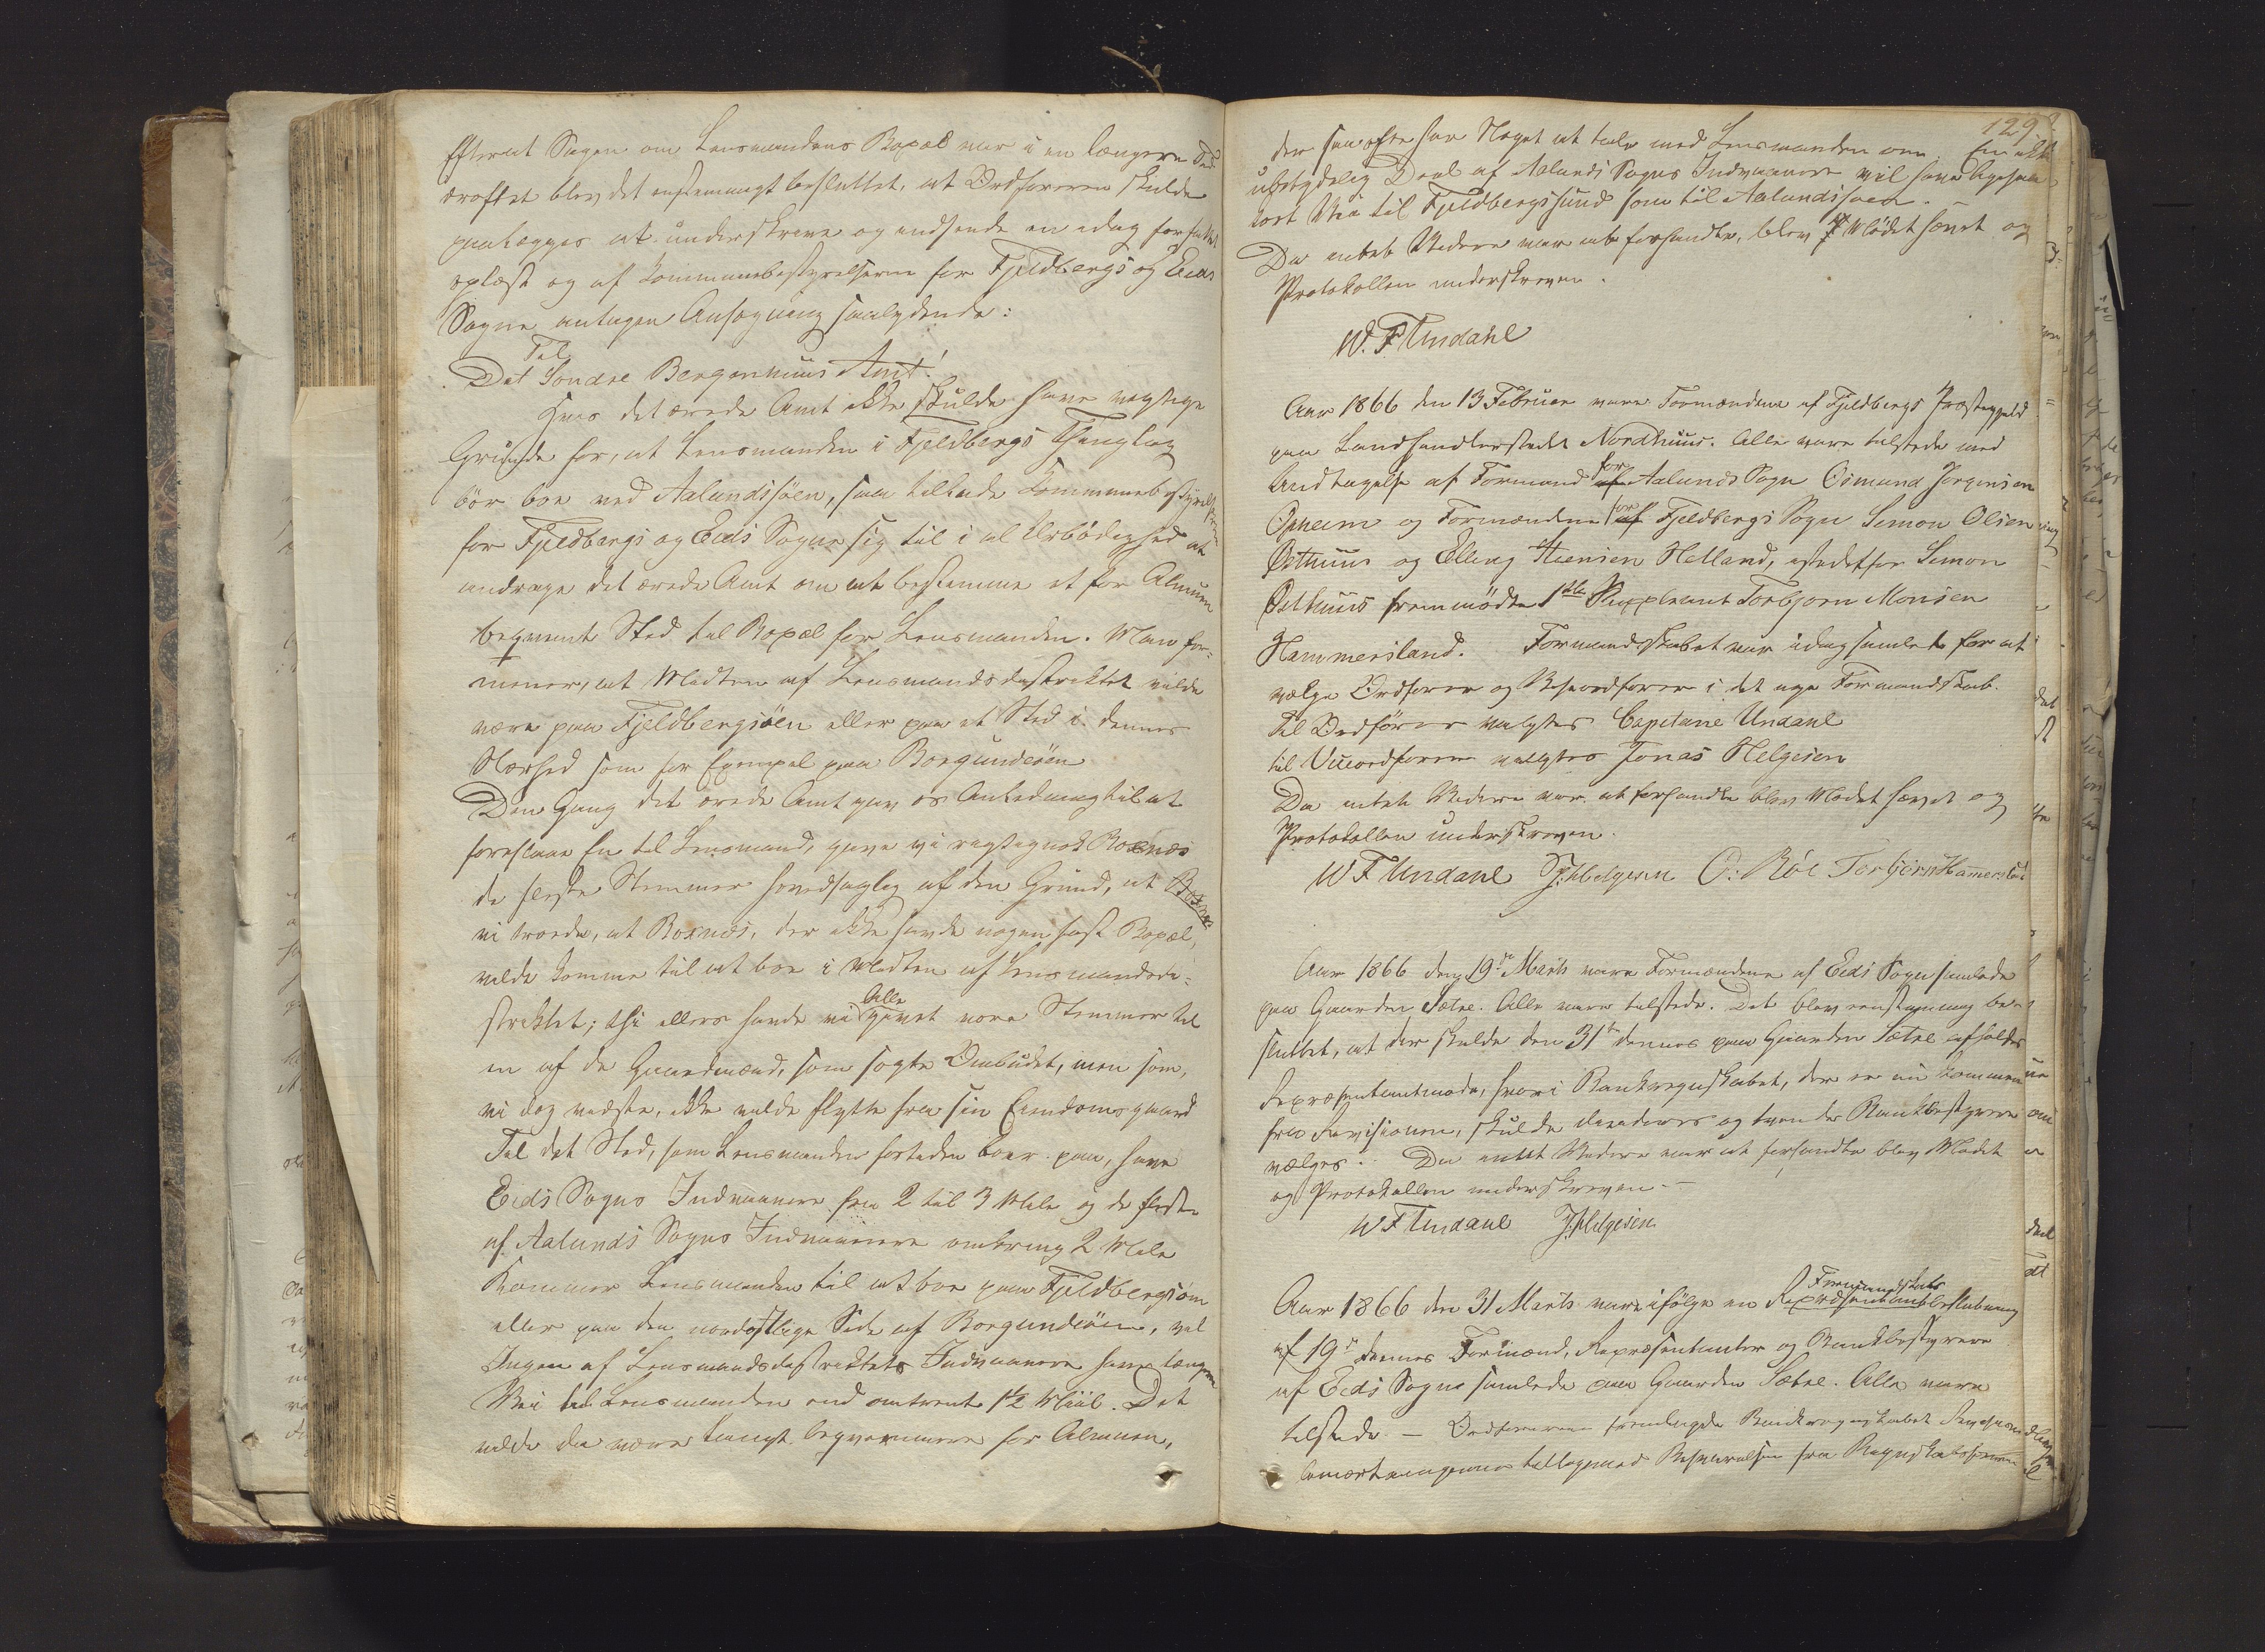 Efterat Sagen om Lensmandens Bopæl var i en længere Tid
drøftet blev det enstemmigt besluttet, at Ordføreren skulde
paalægges at underskrive og indsende en idag forfattet
oplæst og af Kommunebestyrelserne for Fjeldbergs og Eids
Sogne antagen Ansøgning saalydende:
Til
Det Søndre Bergenhuus Amt!
Hvis det ærede Amt ikke skulde have vigtige
Grunde for, at Lensmanden i Fjeldbergs Thinglag
bør boe ved Aalundsøen, saa tillade Kommunebestyrelserne
for Fjeldbergs og Eids Sogne sig til i al Ærbødighed at
andrage det ærede Amt om at bestemme et for Almuen
beqvemt Sted til Bopæl for Lensmanden. Man for-
mener, at Midten af Lensmandsdistriktet vilde
være paa Fjeldbergsøen eller paa et Sted i dennes
Nærhed som for Exempel paa Borgundøen
Den Gang det ærede Amt gav os Anledning til at
foreslaae En til Lensmand, gave vi rigtignok Roxnæs
de fleste Stemmer hovedsaglig af den Grund, at
vi troede, at Roxnæs, der ikke havde nogen fast Bopæl,
vilde komme til at boe i Midten af Lensmandsdi-
striktet; thi ellers havde vi Alle givet vore Stemmer til
en af de Gaardmænd, som søgte Ombudet, men som,
vi dog vidste, ikke vilde flytte fra sin Eiendomsgaard
Til det Sted, som Lensmanden fortiden boer paa, have
Eids Sogns Indvaanere fra 2 til 3 Mile og de fleste
af Aalunds Sogns Indvaanere omkring 2 Mile
Kommer Lensmanden til at boe paa Fjeldbergsøen
eller paa den nordøstlige Side af Borgundøen, vil
Ingen af Lensmandsdistriktets Indvaanere have længere
Vei til Lensmanden end omtrent 1½ Miil. Det
vilde da være langt beqvemmere for Almuen,
129
der saa ofte har Noget at tale med Lensmanden om. En ikke
ubetydelig Deel af Aalunds Sogns Indvaanere vil have ligesaa
kort Vei til Fjeldbergssund som til Aalundsøen.
Da intet Videre var at forhandle, blev Mødet hævet og
Protokollen underskreven.
W. F Undahl
Aar 1866 den 13 Februar vare Formændene af Fjeldbergs Præstegjeld
paa Landhandlerstedet Nordhuus. Alle vare tilstede med
Undtagelse af Formand for Aalunds Sogn Osmund Jørgensen
Opheim og Formændene for Fjeldbergs Sogn Simon Olsen
Østhuus og Elling Hansen Helland, istedetfor Simon
Østhuus fremmødte 1ste Suppleant Torbjørn Monsen
Hammersland. Formandskabet var idag samlet for at
vælge Ordfører og Viceordfører i det nye Formandskab.
Til Ordfører valgtes Capitaine Undahl
til Viceordfører valgtes Jonas Helgesen
Da intet Videre var at forhandle blev Mødet hævet og
Protokollen underskreven.
W F Undahl J. Helgesen O: Røe Torbjørn Hammersland
Aar 1866 den 19de Marts vare Formændene af Eids Sogn samlede
paa Gaarden Sætre. Alle vare tilstede. Det blev eenstemmig be-
sluttet, at der skulde den 31te dennes paa Gaarden Sætre afholdes
Repræsentantmøde, hvori Bankregnskabet, der er nu kommen
fra Revisionen, skulde decideres og tvende Bankbestyrere
vælges. Da intet Videre var at forhandle blev Mødet
og Protokollen underskreven.
W F Undahl J. Helgesen
Aar 1866 den 31 Marts vare ifølge en Formandskabs beslutning
af 19de dennes Formænd, Repræsentanter og Bankbestyrere
af Eids Sogn samlede paa Gaarden Sætre. Alle vare
tilstede — Ordføreren fremlagde Bankregnskabet
bemærkningerne tilligemed Besvarelsen fra